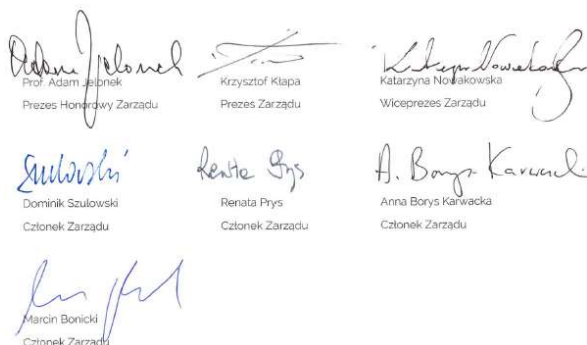 Adam Jelonek
Prof. Adam Jelonek
Prezes Honorowy Zarządu
Krzysztof Kłapa
Prezes Zarządu
Katarzyna Nowakowska
Katarzyna Nowakowska
Wiceprezes Zarządu
Szulowski
Dominik Szulowski
Członek Zarządu
Renata Prys
Renata Prys
Członek Zarządu
A. Borys Karwacka
Anna Borys Karwacka
Członek Zarządu
Marcin Bonicki
Członek Zarządu